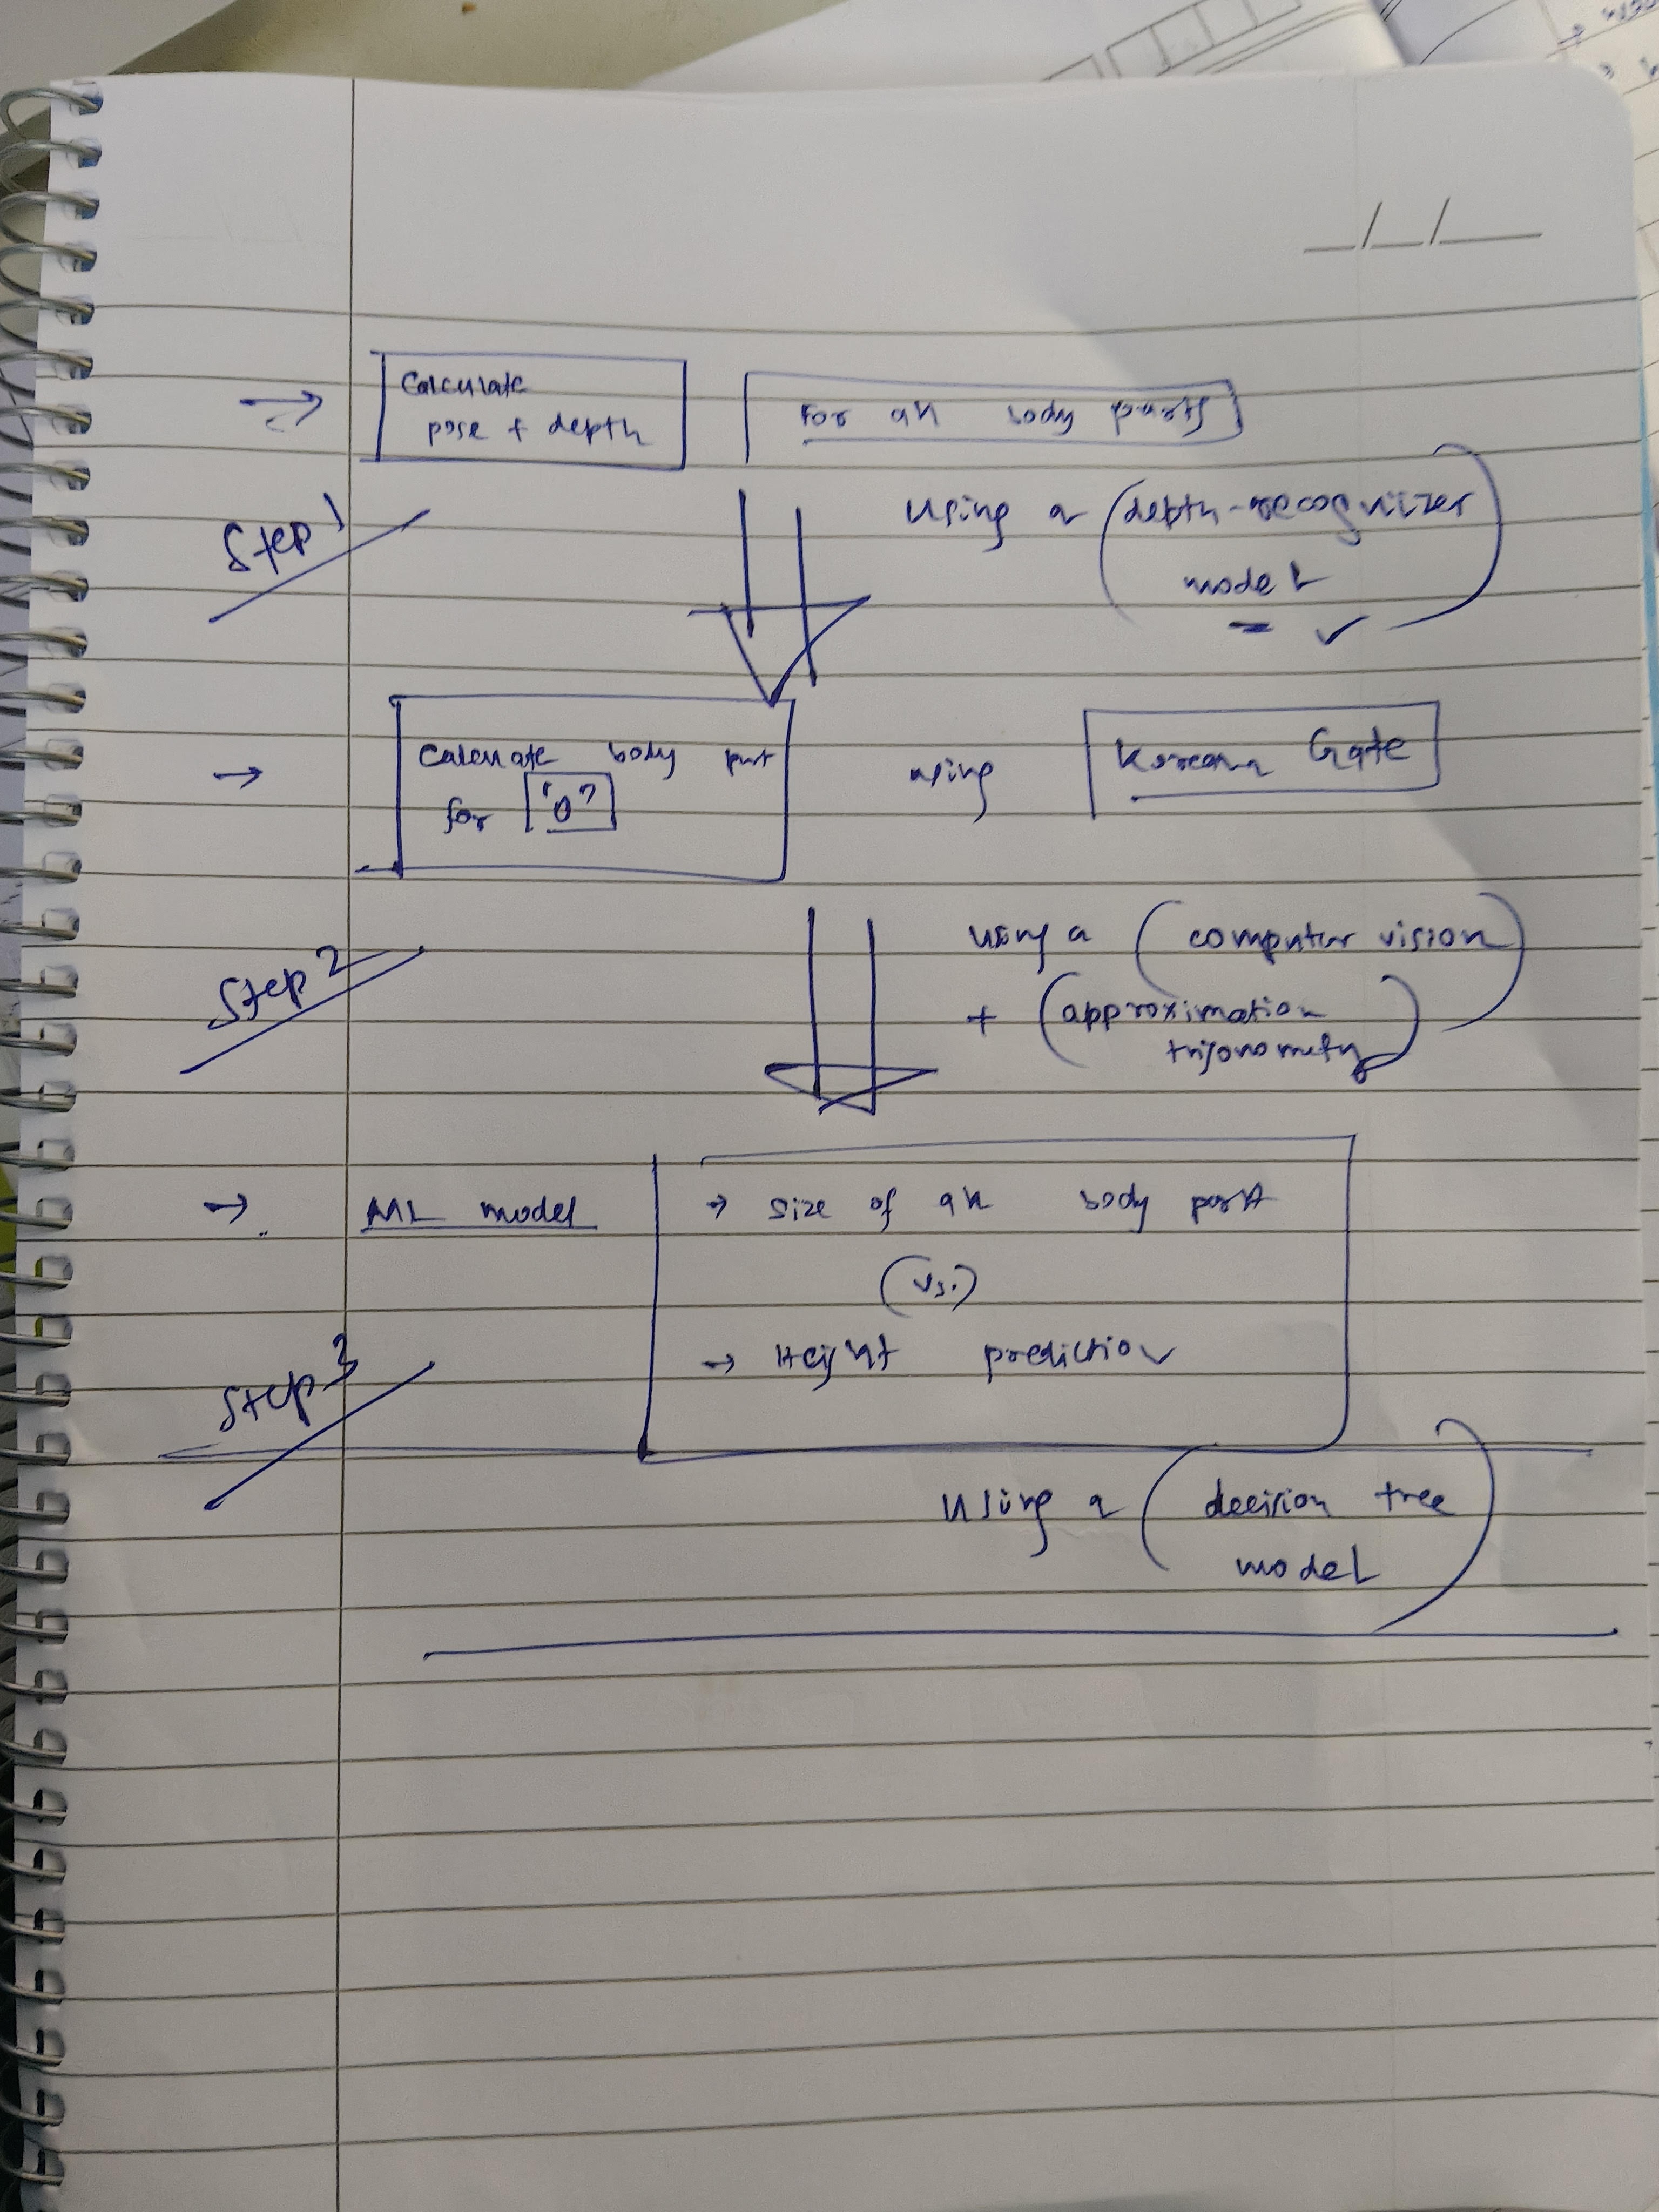 / /
→ Calculate
pose + depth
For all body parts
Step 1
using a (depth-recognizer
model)
= ✓
→ Calculate body part
for "θ"
using Korean Gate
Step 2
using a (computer vision)
+ (approximation
trigonometry)
→ ML model
→ size of all body part
(vs.)
→ Height prediction
Step 3
using a (decision tree
model)